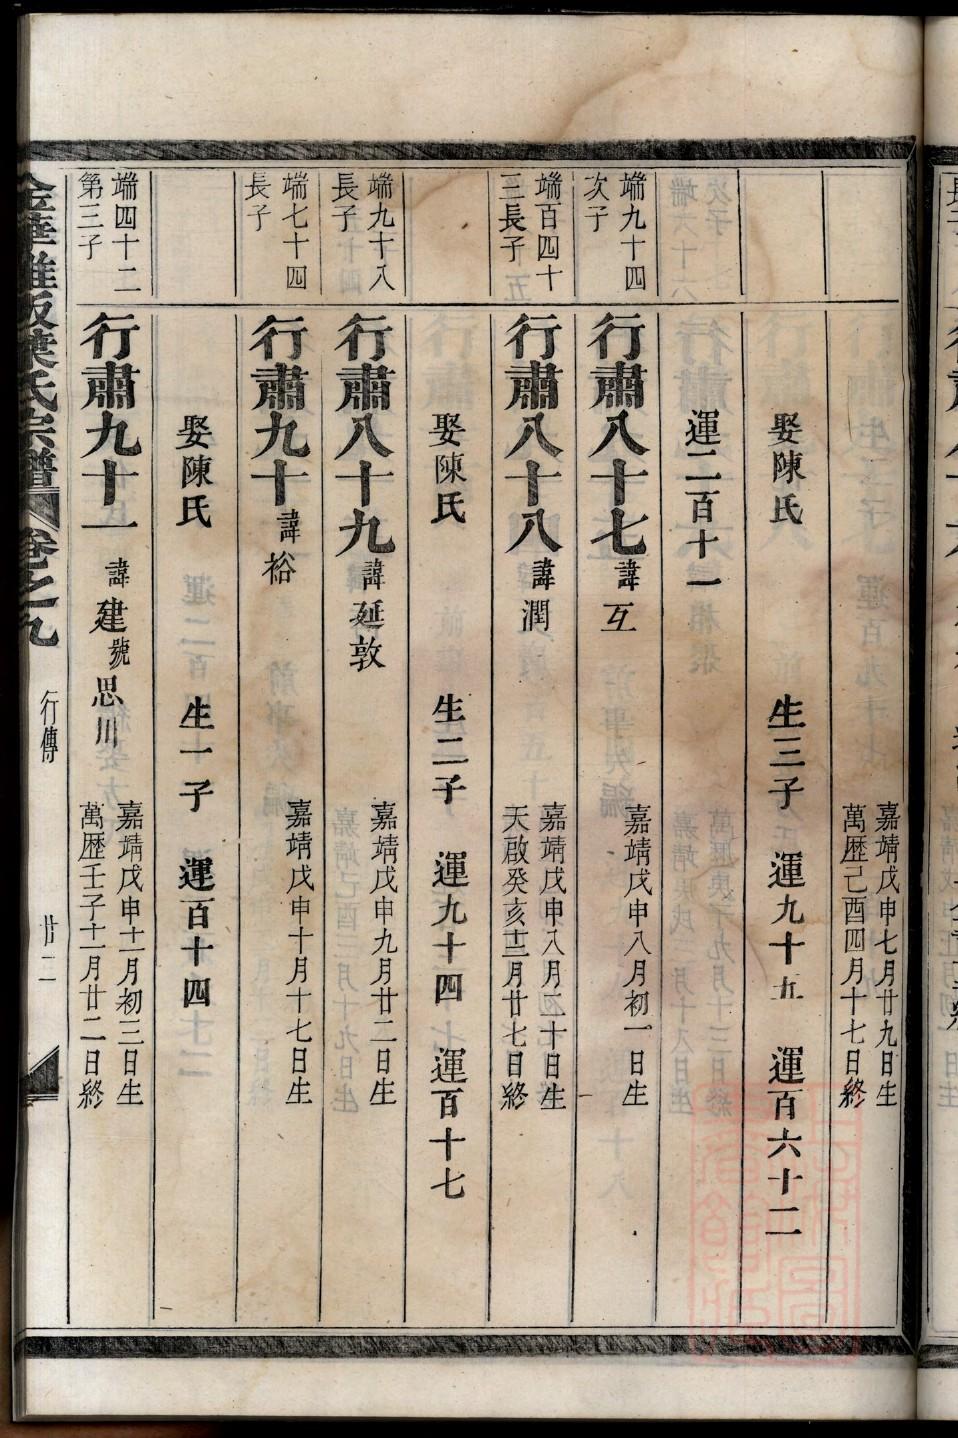 嘉靖戊申七月廿九日生
萬歷己酉四月十七日終
娶陳氏 生三子 運九十五 運百六十二
運二百十一
端九十四
次子
行肅八十七 諱互 嘉靖戊申八月初一日生
端百四十
三長子
行肅八十八 諱潤 嘉靖戊申八月二十日生
天啟癸亥十二月廿七日終
娶陳氏 生二子 運九十四 運百十七
端九十八
長子
行肅八十九 諱延敦 嘉靖戊申九月廿二日生
端七十四
長子
行肅九十 諱裕 嘉靖戊申十月十七日生
娶陳氏 生一子 運百十四
端四十二
第三子
行肅九十一 諱建 號思川 嘉靖戊申十二月初三日生
萬歷壬子十一月廿二日終
葉氏宗譜 卷之九 行傳 廿二